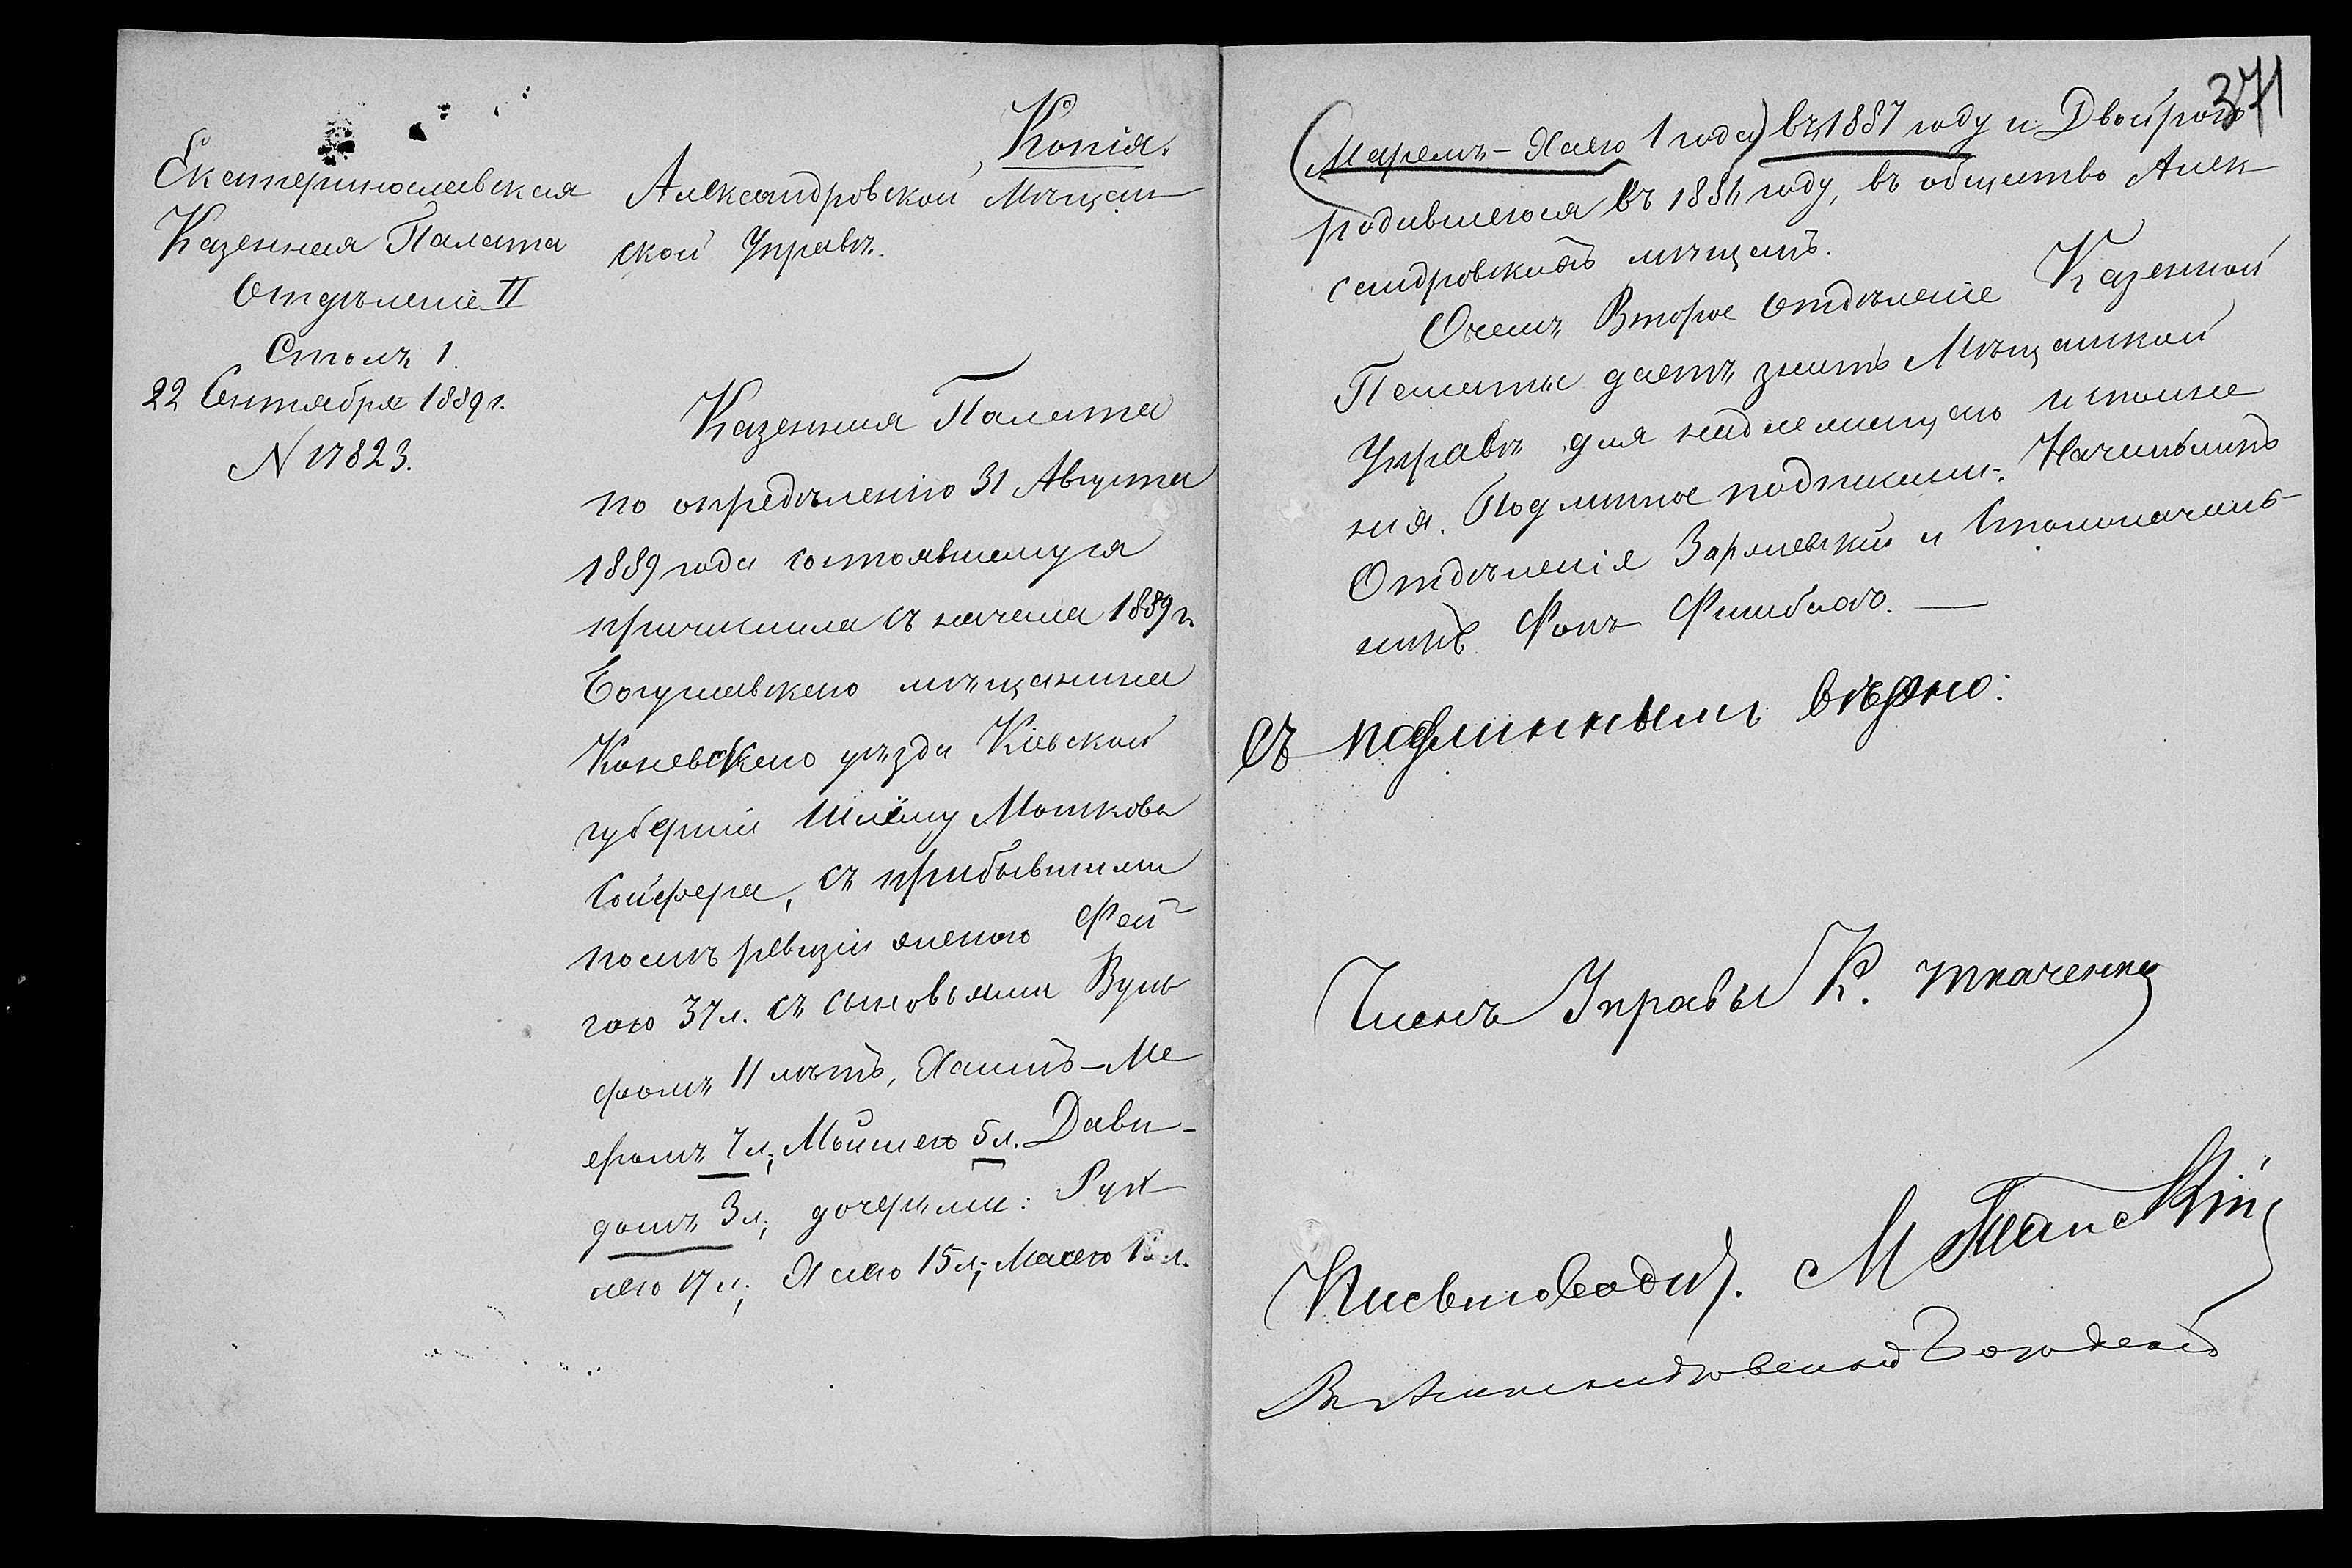 Копія.
Екатеринославская
Казенная Палата
Отдѣленіе II
Столъ 1.
22 Сентября 1889 г.
N 17823.
Александровской Мѣщан
ской Управѣ.
Казенная Палата
по опредѣленію 31 Августа
1889 года состоявшемуся
причислила съ начала 1889 г.
Богуславскаго мѣщанина
Каневскаго уѣзда Кіевской
губерніи Шлёму Мошкова
Сойфера, съ прибывшими
послѣ ревизіи женою Фей
гою 37 л. съ сыновьями Вуль
фомъ 11 лѣтъ, Хаимъ-Ме
еромъ 7 л., Мойшею 5 л. Дави-
домъ 3 л., дочерьми: Рух
лею 17 л., Хаею 15 л., Малею л.
371
(Марѣмъ-Хаею 1 года) въ 1887 году и Двойрою
родившеюся въ 1886 году, въ общество Алек
сандровскихъ мѣщанъ.
О чемъ Второе отдѣленіе Казенной
Палаты даетъ знать Мѣщанской
Управѣ для надлежащаго исполне
нія. Подлинное подписали: Начальникъ
Отдѣленія и Столоначаль-
никъ Фонъ
Съ подлиннымъ вѣрно:
Членъ Управы К. Ткаченко
Письмоводит. М